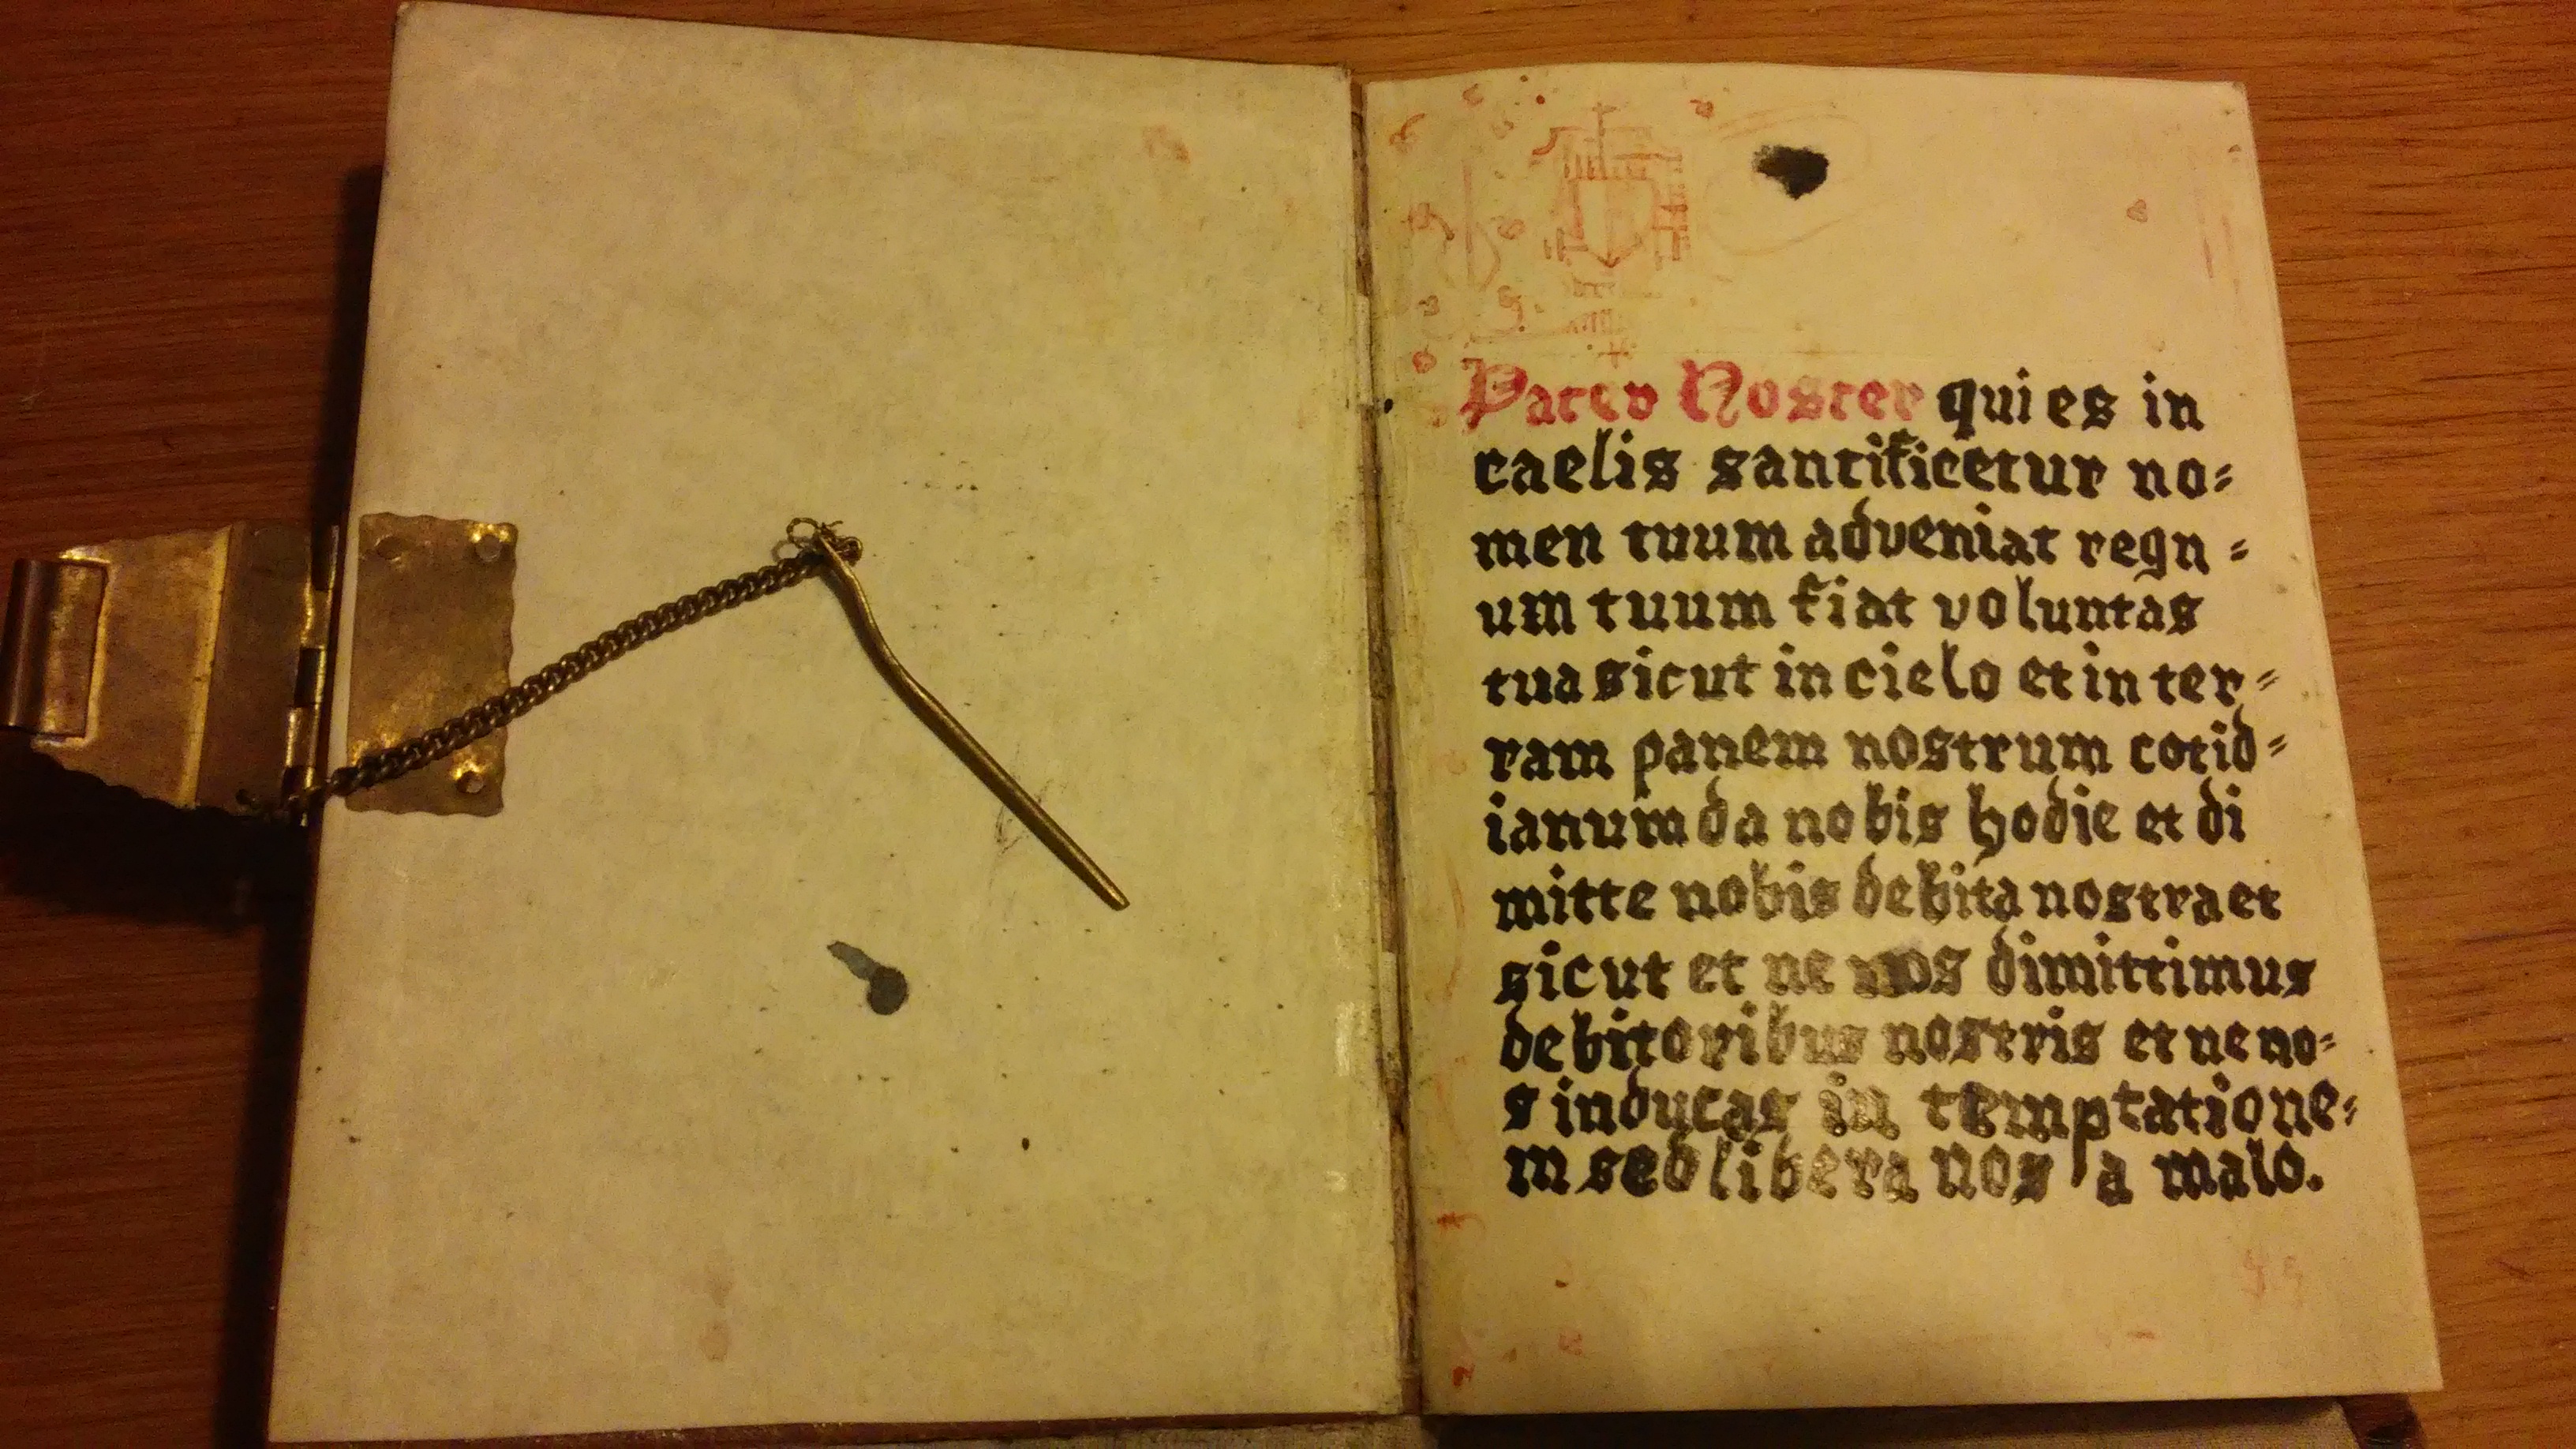 Pater Noster qui es in
caelis santificetur no=
men tuum adveniat regn=
um tuum fiat voluntas
tua sicut in cielo et in ter=
ram panem nostrum cotid=
ianum da nobis hodie et di
mitte nobis debita nostra et
sicut et ne nos dimittimus
debitoribus nostris et ne no=
s inducas in temptatione=
m sed libera nos a malo.